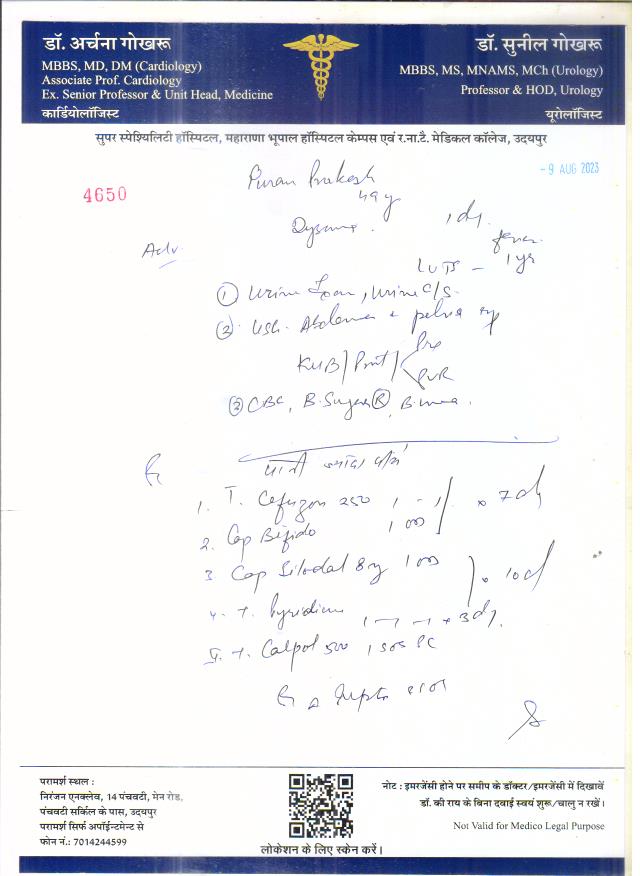 डॉ. अर्चना गोखरू
MBBS, MD, DM (Cardiology)
Associate Prof. Cardiology
Ex. Senior Professor & Unit Head, Medicine
कार्डियोलॉजिस्ट
डॉ. सुनील गोखरू
MBBS, MS, MNAMS, MCh (Urology)
Professor & HOD, Urology
यूरोलॉजिस्ट
सुपर स्पेश्यिलिटी हॉस्पिटल, महाराणा भूपाल हॉस्पिटल केम्पस एवं र.ना.टै. मेडिकल कॉलेज, उदयपुर
- 9 AUG 2023
4650
Puran Prakash
49 y
Dysuria . 1 dy.
fever
Adv. LUTS - 1 yr
① Urine , Urine C/S.
② USG. Abdomen & pelvis
KUB/Prost/ Pre
PVR
③ CBC, B. Sugar Ⓡ, B. urea.
पानी ज्यादा पीयें
1. T. 250 1 - 1 x 7 d
2. Cap Bifido 1 OD
3 Cap Silodal 8 mg 1 OD x 10 d
4. T. Pyridium 1 - 1 - 1 x 3 dy.
5. T. Calpol 500 1 SOS
परामर्श स्थल :
निरंजन एनक्लेव, 14 पंचवटी, मेन रोड,
पंचवटी सर्किल के पास, उदयपुर
परामर्श सिर्फ अपॉईन्टमेन्ट से
फोन नं.: 7014244599
लोकेशन के लिए स्केन करें।
नोट : इमरजेंसी होने पर समीप के डॉक्टर/इमरजेंसी में दिखावें
डॉ. की राय के बिना दवाई स्वयं शुरू/चालु न रखें।
Not Valid for Medico Legal Purpose